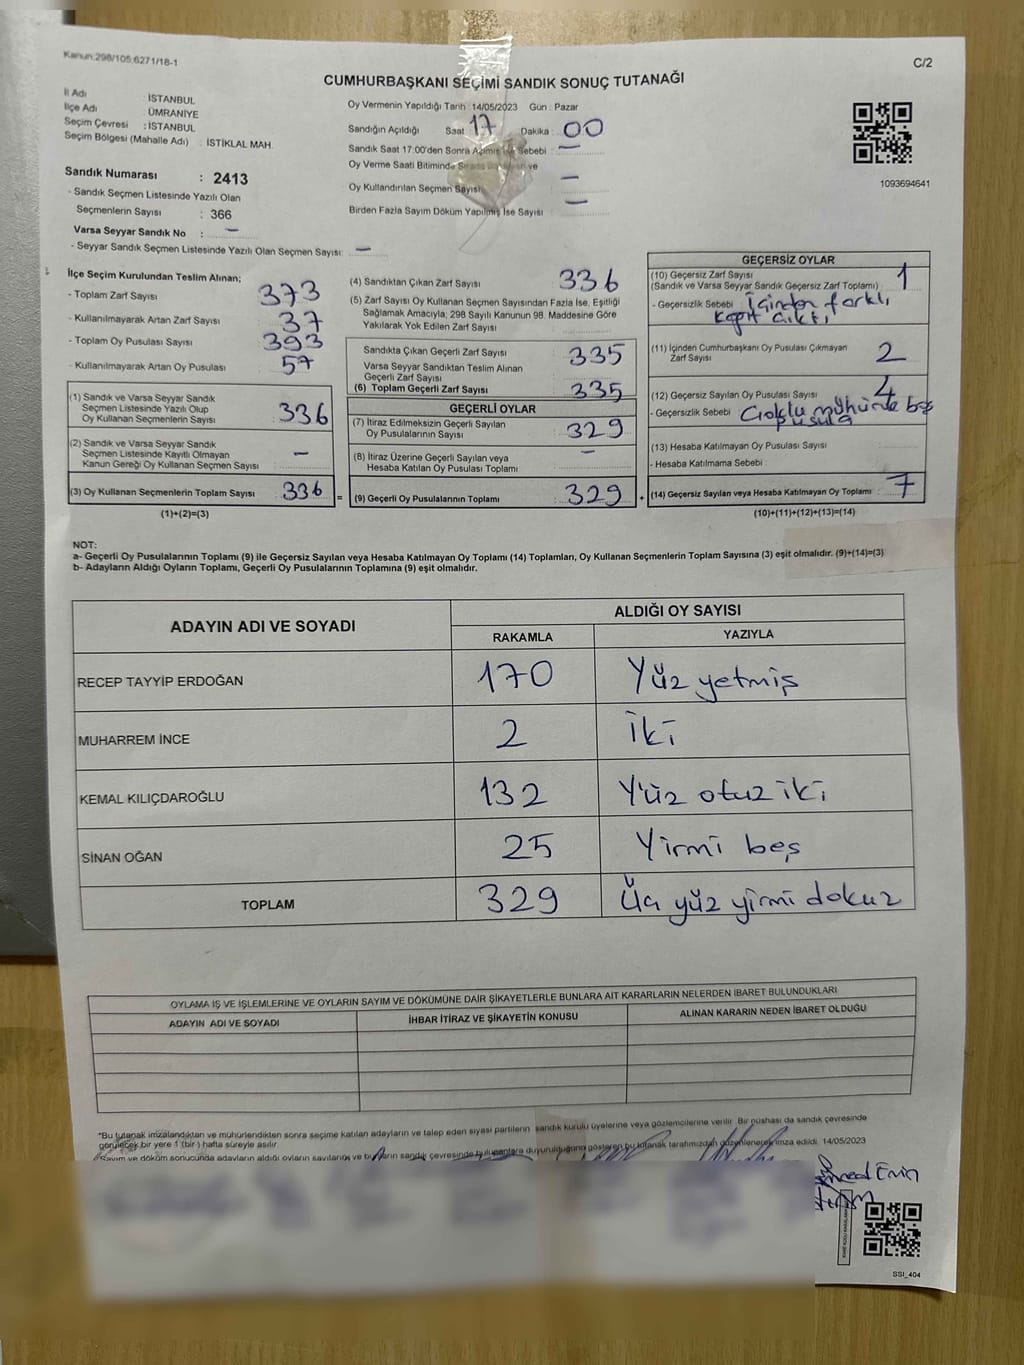 Kanun:298/105;6271/18-1
C/2
CUMHURBAŞKANI SEÇİMİ SANDIK SONUÇ TUTANAĞI
İl Adı : İSTANBUL
İlçe Adı : ÜMRANİYE
Seçim Çevresi : İSTANBUL
Seçim Bölgesi (Mahalle Adı) : İSTİKLAL MAH.
Sandık Numarası : 2413
- Sandık Seçmen Listesinde Yazılı Olan
Seçmenlerin Sayısı : 366
Varsa Seyyar Sandık No : —
- Seyyar Sandık Seçmen Listesinde Yazılı Olan Seçmen Sayısı: —
Oy Vermenin Yapıldığı Tarih :14/05/2023 Gün : Pazar
Sandığın Açıldığı Saat : 17 Dakika : 00
Sandık Saat 17:00'den Sonra Açılmış İse Sebebi : —
Oy Verme Saati Bitiminde Sırada ve
Oy Kullandırılan Seçmen Sayısı —
Birden Fazla Sayım Döküm Yapılmış İse Sayısı : —
1093694641
İlçe Seçim Kurulundan Teslim Alınan;
- Toplam Zarf Sayısı : 373
- Kullanılmayarak Artan Zarf Sayısı : 37
- Toplam Oy Pusulası Sayısı : 393
- Kullanılmayarak Artan Oy Pusulası : 57
(1) Sandık ve Varsa Seyyar Sandık
Seçmen Listesinde Yazılı Olup
Oy Kullanan Seçmenlerin Sayısı : 336
(2) Sandık ve Varsa Seyyar Sandık
Seçmen Listesinde Kayıtlı Olmayan
Kanun Gereği Oy Kullanan Seçmen Sayısı : —
(3) Oy Kullanan Seçmenlerin Toplam Sayısı : 336
(1)+(2)=(3)
=
(4) Sandıktan Çıkan Zarf Sayısı : 336
(5) Zarf Sayısı Oy Kullanan Seçmen Sayısından Fazla İse, Eşitliği
Sağlamak Amacıyla; 298 Sayılı Kanunun 98. Maddesine Göre
Yakılarak Yok Edilen Zarf Sayısı :
Sandıkta Çıkan Geçerli Zarf Sayısı : 335
Varsa Seyyar Sandıktan Teslim Alınan
Geçerli Zarf Sayısı :
(6) Toplam Geçerli Zarf Sayısı : 335
GEÇERLİ OYLAR
(7) İtiraz Edilmeksizin Geçerli Sayılan
Oy Pusulalarının Sayısı : 329
(8) İtiraz Üzerine Geçerli Sayılan veya
Hesaba Katılan Oy Pusulası Toplamı : —
(9) Geçerli Oy Pusulalarının Toplamı : 329
+
GEÇERSİZ OYLAR
(10) Geçersiz Zarf Sayısı : 1
(Sandık ve Varsa Seyyar Sandık Geçersiz Zarf Toplamı)
- Geçersizlik Sebebi : içinden farklı
kağıt çıktı
(11) İçinden Cumhurbaşkanı Oy Pusulası Çıkmayan
Zarf Sayısı : 2
(12) Geçersiz Sayılan Oy Pusulası Sayısı : 4
- Geçersizlik Sebebi : Çoklu mühür ve boş
pusula
(13) Hesaba Katılmayan Oy Pusulası Sayısı :
- Hesaba Katılmama Sebebi :
(14) Geçersiz Sayılan veya Hesaba Katılmayan Oy Toplamı : 7
(10)+(11)+(12)+(13)=(14)
NOT:
a- Geçerli Oy Pusulalarının Toplamı (9) ile Geçersiz Sayılan veya Hesaba Katılmayan Oy Toplamı (14) Toplamları, Oy Kullanan Seçmenlerin Toplam Sayısına (3) eşit olmalıdır. (9)+(14)=(3)
b- Adayların Aldığı Oyların Toplamı, Geçerli Oy Pusulalarının Toplamına (9) eşit olmalıdır.
ADAYIN ADI VE SOYADI
ALDIĞI OY SAYISI
RAKAMLA YAZIYLA
RECEP TAYYİP ERDOĞAN 170 Yüz yetmiş
MUHARREM İNCE 2 İki
KEMAL KILIÇDAROĞLU 132 Yüz otuz iki
SİNAN OĞAN 25 Yirmi beş
TOPLAM 329 Üç yüz yirmi dokuz
OYLAMA İŞ VE İŞLEMLERİNE VE OYLARIN SAYIM VE DÖKÜMÜNE DAİR ŞİKAYETLERLE BUNLARA AİT KARARLARIN NELERDEN İBARET BULUNDUKLARI
ADAYIN ADI VE SOYADI İHBAR İTİRAZ VE ŞİKAYETİN KONUSU ALINAN KARARIN NEDEN İBARET OLDUĞU
*Bu tutanak imzalandıktan ve mühürlendikten sonra seçime katılan adayların ve talep eden siyasi partilerin sandık kurulu üyelerine veya gözlemcilerine verilir. Bir nüshası da sandık çevresinde
görülecek bir yere 1 (bir) hafta süreyle asılır.
Sayım ve döküm sonucunda adayların aldığı oyların sayılarını ve bunların sandık çevresinde bulunanlara duyurulduğunu gösteren bu tutanak tarafımızdan düzenlenerek imza edildi. 14/05/2023
Emin
SSI_404